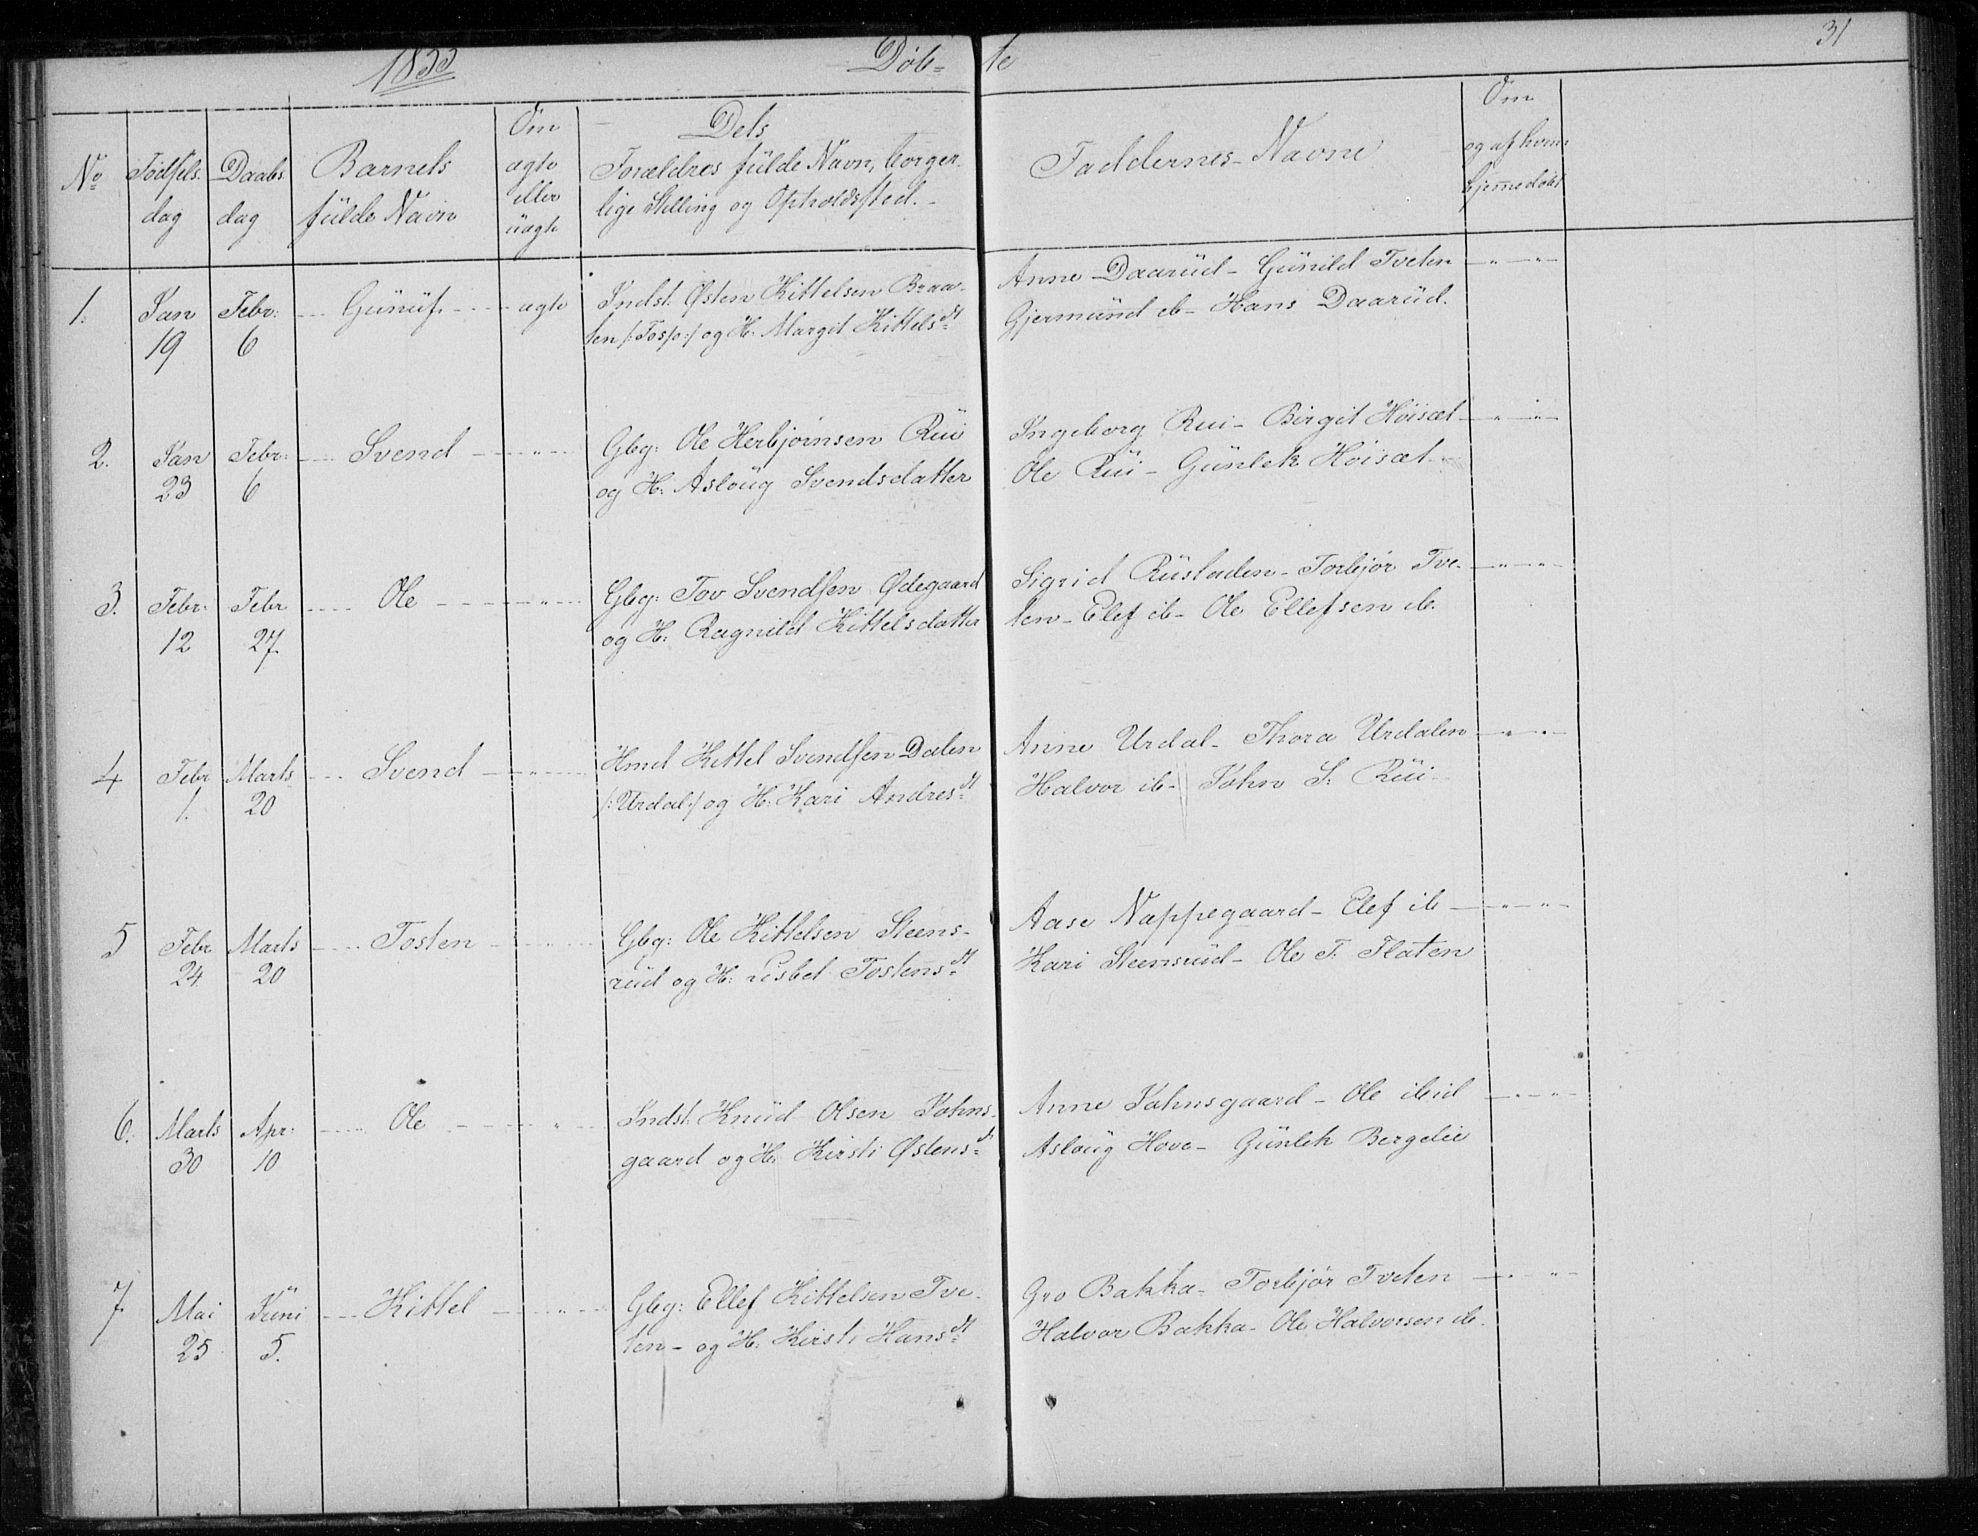 1853
Døb- te
31
No
Fødsels dag
Daabs dag
Barnets fülde Navn
Om ægte eller üægte
Dets Forældres fülde Navn, borger-
lige Stilling og Opholdssted.-
Faddernes Navne
Om og af hvem hjemmedøbt
1. Jan 19 Febr: 6 Günüf. ægte
Indst. Østen Kittelsen Braa-
ten /: Fosp:/ og H. Margit Kittelsdt
Anne Daarüd - Günild Tveten
Gjermünd ib - Hans Daarüd.
2. Jan 23 Febr: 6 Svend "
Gbg: Ole Herbjørnsen Rüi
og H: Asloüg Svendsdatter
Ingeborg Rui - Birgit Høisæt
Ole Rüi - Günlek Høisæt
3. Febr: 12 Febr 27 Ole "
Gbg: Tov Svendsen Ødegaard
og H: Ragnild Kittelsdatter
Sigrid Rüstaden - Torbjør Tve-
ten - Elef ib - Ole Ellefsen ib.
4 Febr 1. Marts 20 Svend "
Hmd Kittel Svendsen Dalen
/: Urdal:/ og H: Kari Andresdt
Anne Urdal - Thora Urdalen
Halvor ib - John S. Rüi
5 Febr 24 Marts 20 Tosten "
Gbg: Ole Kittelsen Steens-
rüd og H: Lisbet Tostensdt
Aase Nappegaard - Elef ib
Kari Steensrüd - Ole T. Flaten
6. Marts 30 Apr: 10 Ole "
Indst: Knüd Olsen Johns-
gaard og H. Kirsti Østensdt
Anne Johnsgaard - Ole ibid
Asloüg Hove - Günlek Bergelie
7. Mai 25 Jüni 5. Kittel "
Gbg: Ellef Kittelsen Tve-
ten - og H: Kirsti Hansdt
Gro Bakka - Torbjør Tveten
Halvor Bakka - Ole Halvorsen ib.